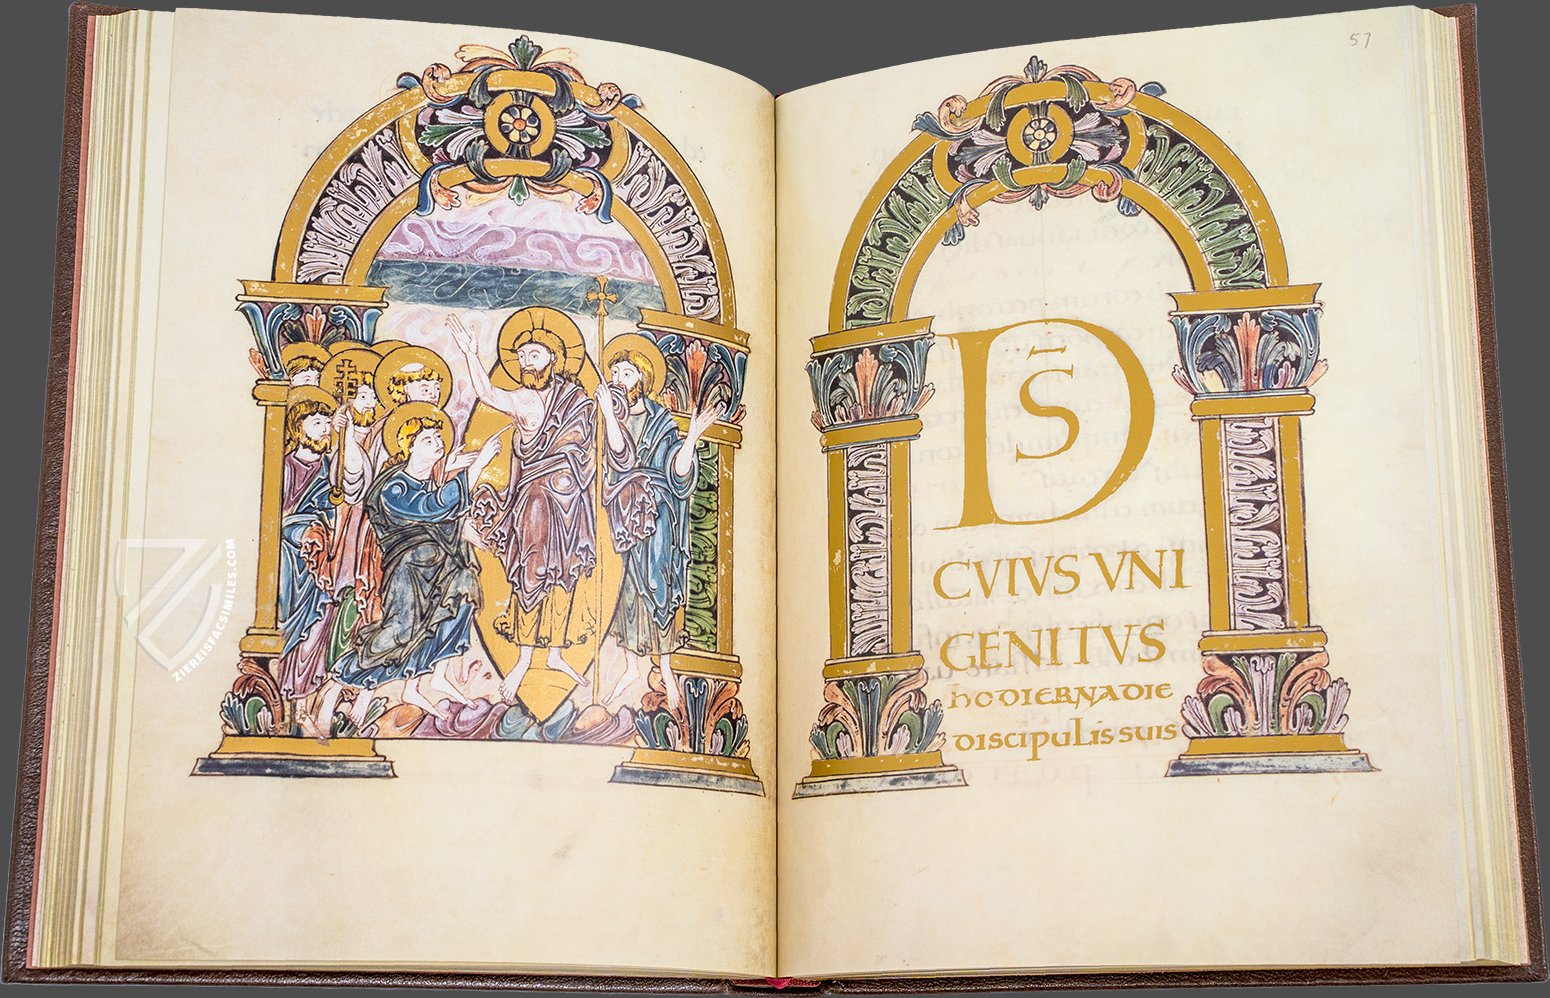 57
D S̄
CVIVS VNI
GENITVS
hODIERNA DIE
DISCIPULIS SUIS
ZIEREISFACSIMILES.COM